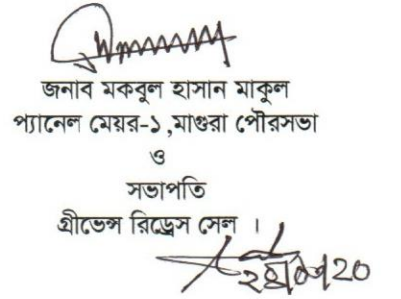 জনাব মকবুল হাসান মাকুল
প্যানেল মেয়র-১ ,মাগুরা পৌরসভা
ও
সভাপতি
গ্রীভেন্স রিড্রেস সেল ।